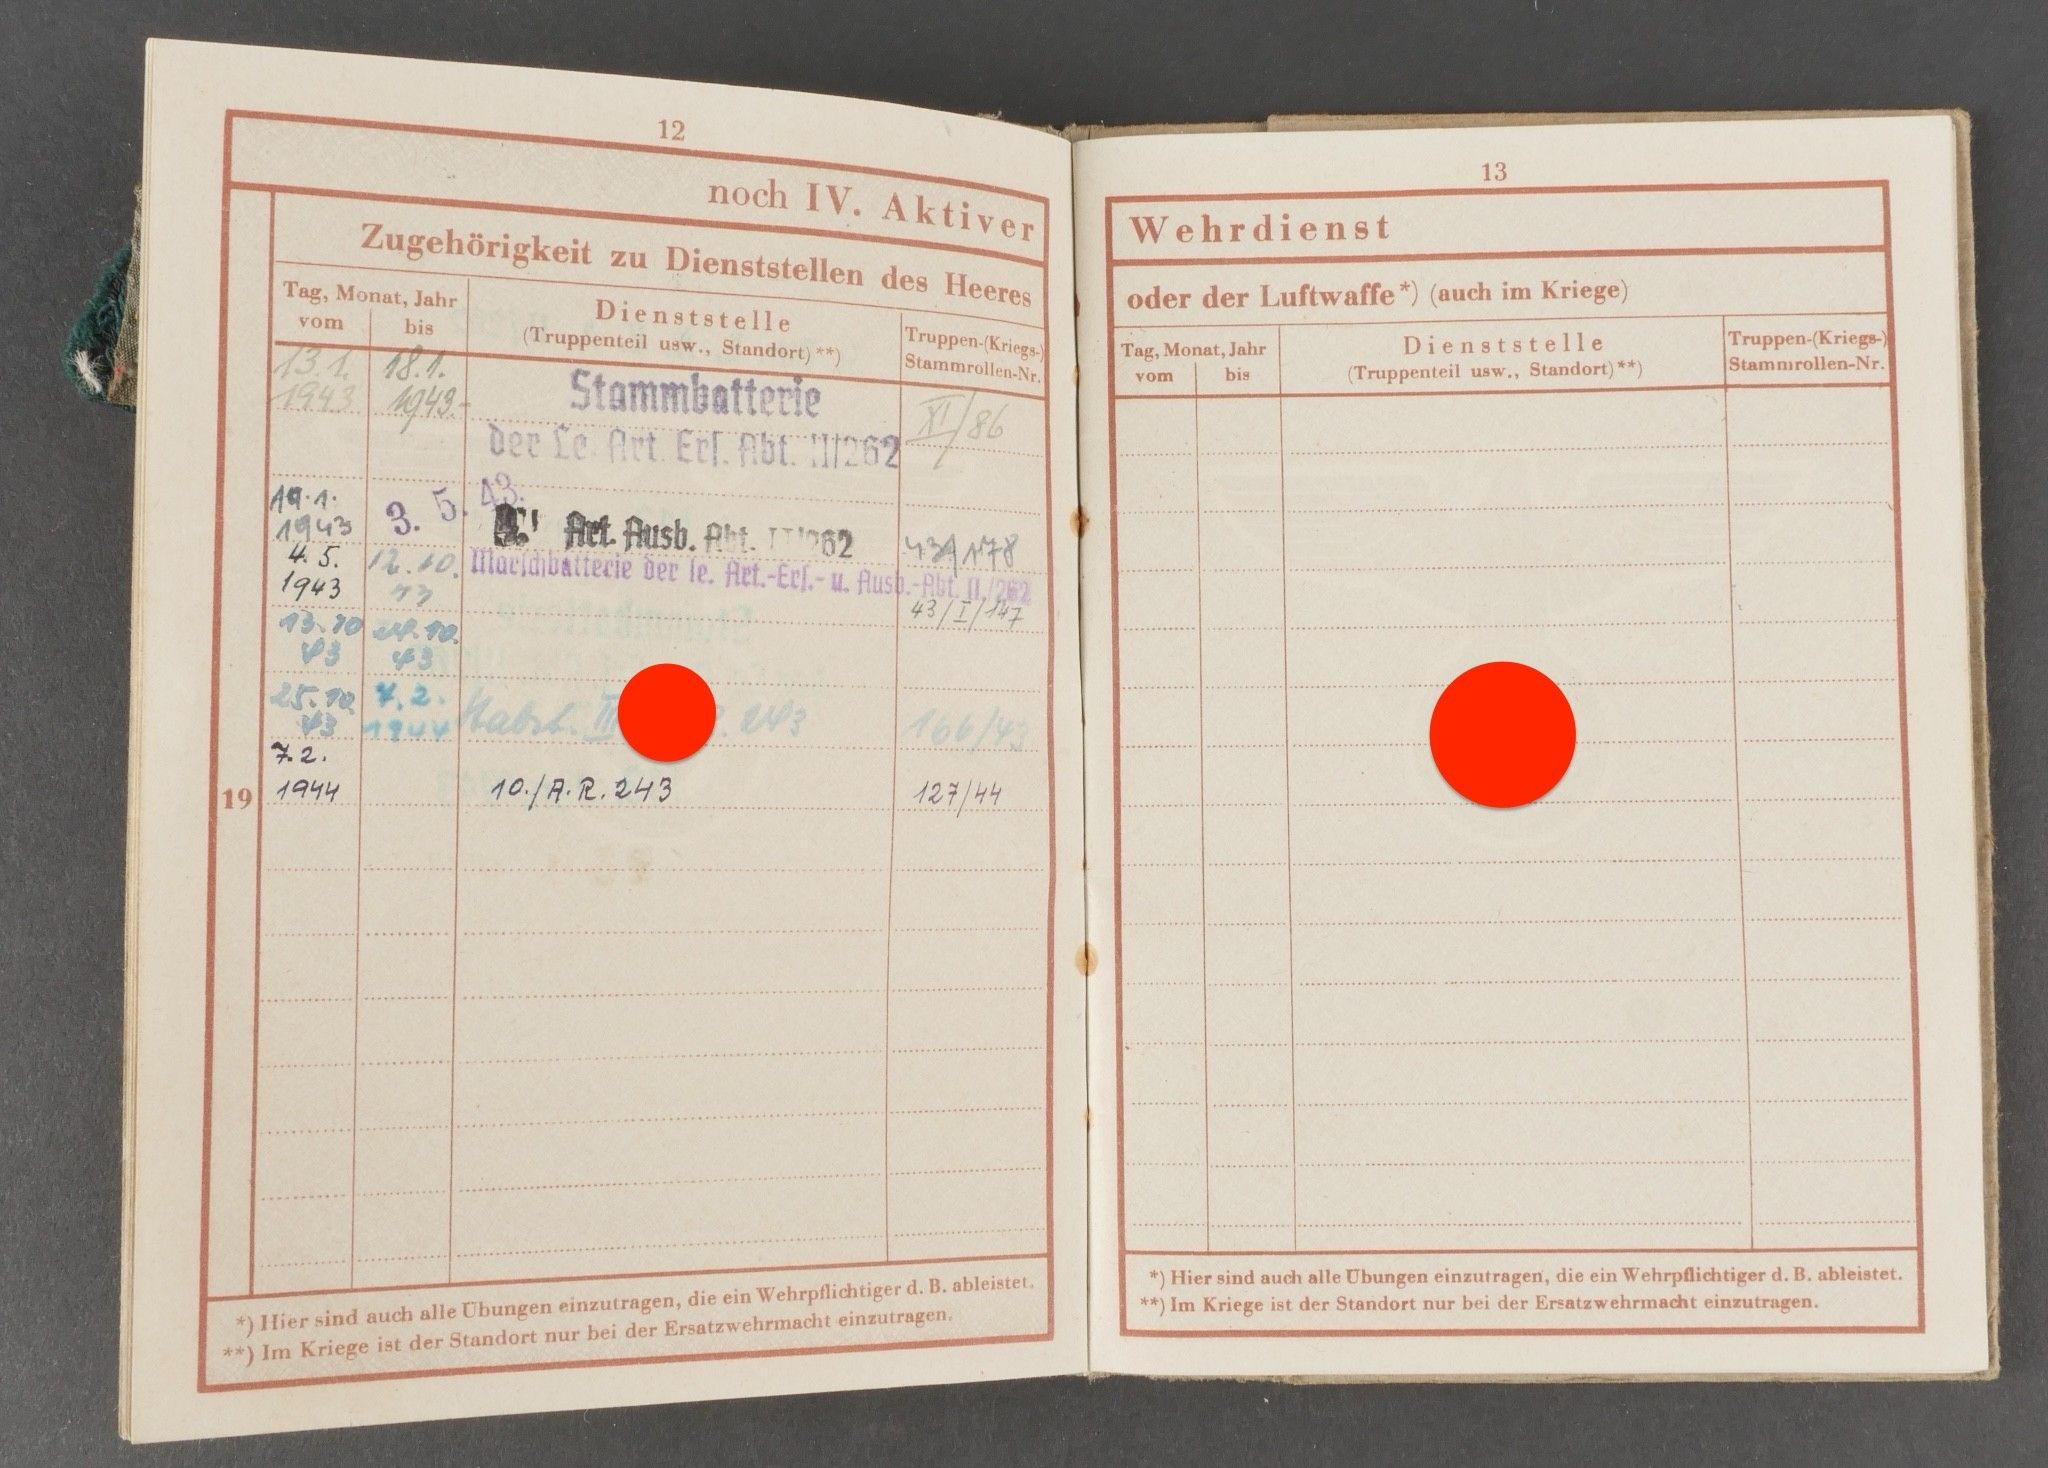 12
noch IV. Aktiver
Zugehörigkeit zu Dienststellen des Heeres
Tag, Monat, Jahr
vom
bis
Dienststelle
(Truppenteil usw., Standort)**)
Truppen-(Kriegs-)
Stammrollen-Nr.
13.1.
1943
18.1.
1943.-
Stammbatterie
der le. Art. Ers. Abt. II/262
XI/86
19.1.
1943
3. 5. 43.
Art. Ausb. Abt. II/262
4.5.
1943
12.10.
Marschbatterie der le. Art.-Ers.- u. Ausb.-Abt. II./262
43/I/147
13.10
43
24.10.
43
25.10.
43
7.2.
1944
III
243
166/43
7.2.
19
1944
10./A.R. 243
127/44
*) Hier sind auch alle Übungen einzutragen, die ein Wehrpflichtiger d. B. ableistet.
**) Im Kriege ist der Standort nur bei der Ersatzwehrmacht einzutragen.
13
Wehrdienst
oder der Luftwaffe*) (auch im Kriege)
Tag, Monat, Jahr
vom
bis
Dienststelle
(Truppenteil usw., Standort)**)
Truppen-(Kriegs-)
Stammrollen-Nr.
*) Hier sind auch alle Übungen einzutragen, die ein Wehrpflichtiger d. B. ableistet.
**) Im Kriege ist der Standort nur bei der Ersatzwehrmacht einzutragen.